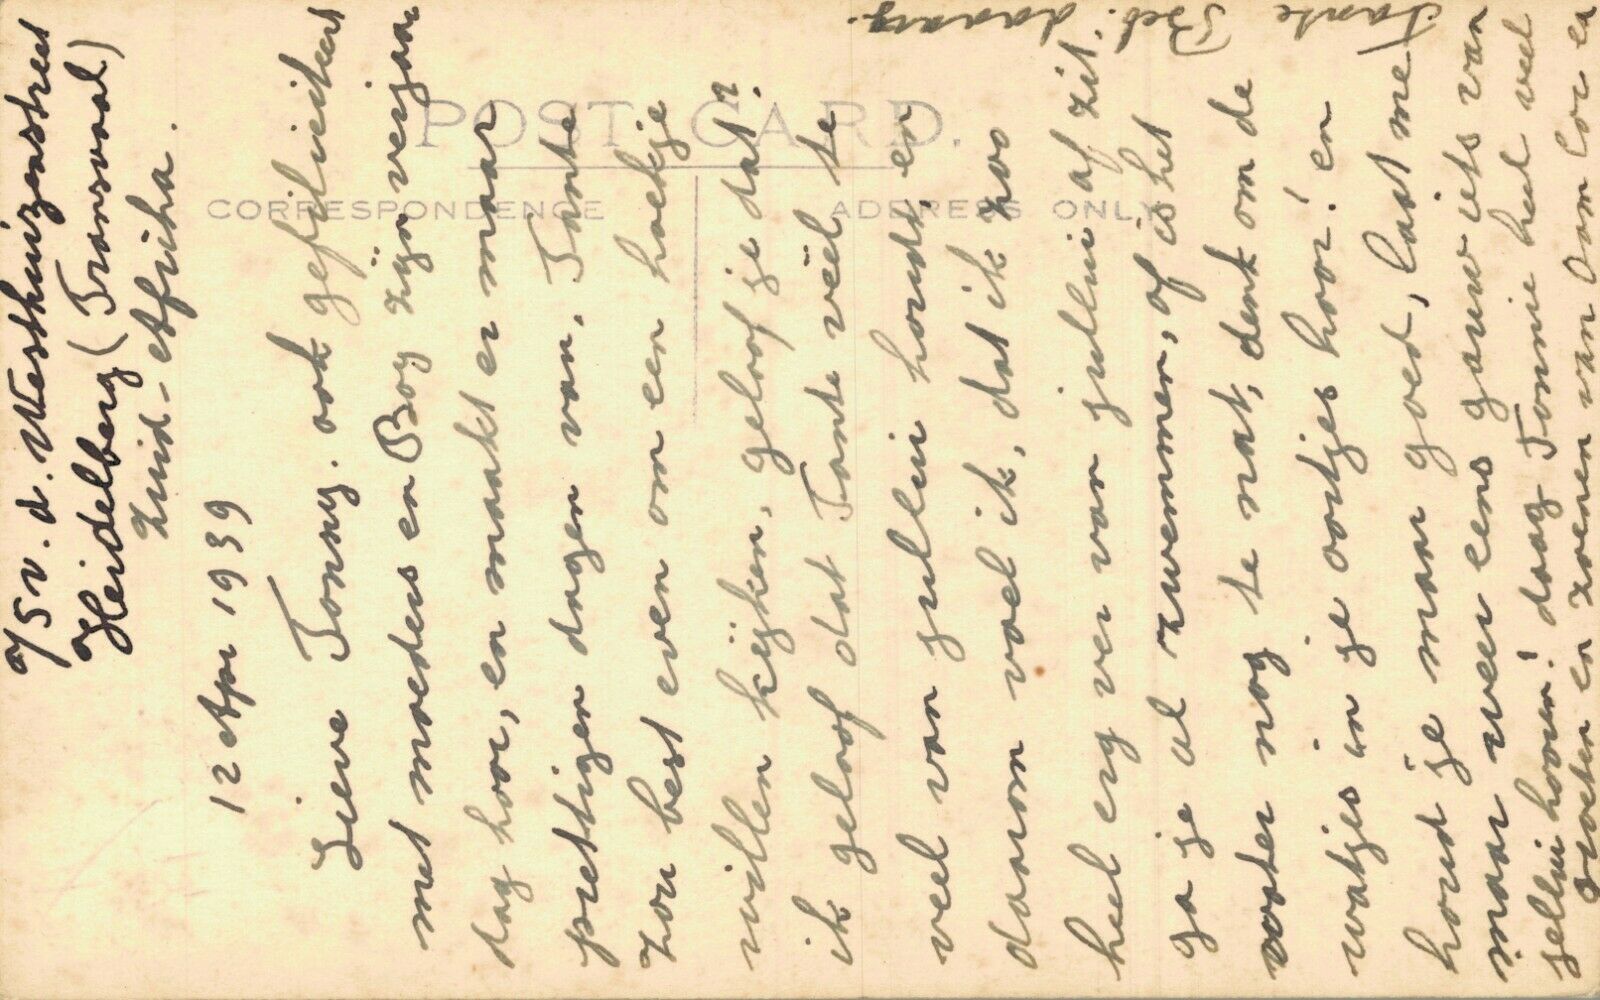 a/s v. d. Westhuizenstreet
Heidelberg (Transvaal)
Zuid-Afrika.
12 Apr 1939
POST CARD.
CORRESPONDENCE
ADDRESS ONLY
Lieve Tonny. ook gefiliciteerd
met moeders en Boy zijn verjaar
dag hoor, en maakt er maar
prettigen dagen van, Tante
zou best even om een hoekje
willen kijken, geloof je dat?
ik geloof dat Tante vëel te
veel van jullui houdt, en
daarom voel ik, dat ik zoo
heel erg ver van jullui af zit.
ga je al zwemmen, of is het
water nog te nat, denk om de
watjes in je oortjes hoor! en
houd je maar goed, laat me
maar weer eens gauw iets van
jellui hooren! daag Tonnie heel veel
groeten en zoenen van Oom Cor en
Tante Bets. daaag.